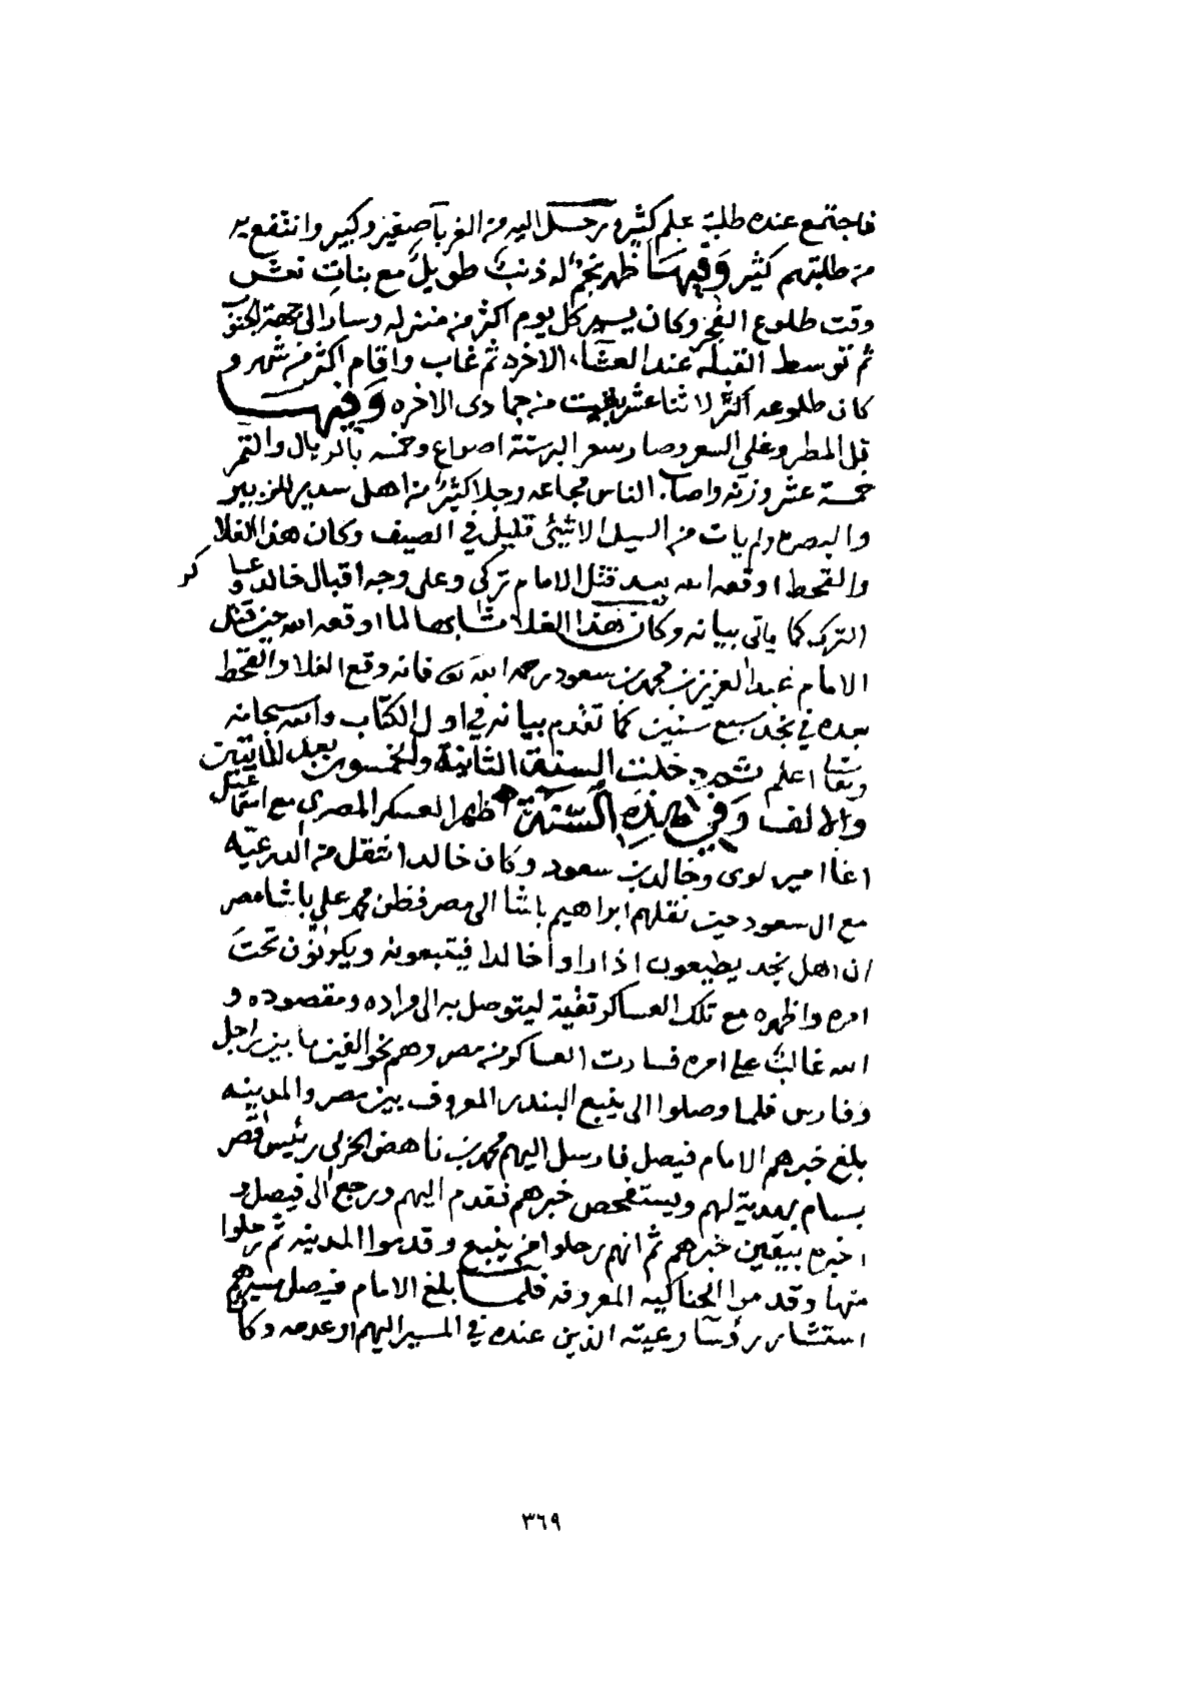 فاجتمع عنده طلبة علم كثير ورحل اليه من الغربا صغير وكبير وانتفع به
من طلبتهم كثير وفيها ظهر نجم له ذنب طويل مع بنات نعش
وقت طلوع الفجر وكان يسير كل يوم اكثر من منزله وسار الى جهة الجنوب
ثم توسط القبلة عند العشاء الاخره ثم غاب واقام اكثر من شهر و
كان طلوعه لاثنا عشر بقيت من جمادى الاخره وفيها
قل المطر وغلي السعر وصار سعر البر ستة اصواع وخمسه بالريال والتمر
خمسة عشر وزنه واصاب الناس مجاعه وجلا كثير من اهل سدير للزبير
والبصره ولم يات من السيل الا شيئ قليل في الصيف وكان هذا الغلا
والقحط اوقعه الله بعد قتل الامام تركي وعلى وجه اقبال خالد وعساكر
الترك كما ياتي بيانه وكان هذا الغلا مشابها لما اوقعه الله حين قتل
الامام عبد العزيز بن محمد بن سعود رحمه الله تعالى فانه وقع الغلا والقحط
بعده في نجد سبع سنين كما تقدم بيانه في اول الكتاب والله سبحانه
وتعالى اعلم ثم دخلت السنة الثانية والخمسون بعد المائتين
والالف وفي هذه السنة ظهر العسكر المصري مع اسماعيل
اغا امير لوى وخالد بن سعود وكان خالد انتقل من الدرعيه
مع ال سعود حين نقلهم ابراهيم باشا الى مصر فظن محمد علي باشا مصر
ان اهل نجد يطيعون اذا راوا خالدا فيتبعونه ويكونون تحت
امره واظهره مع تلك العساكر تقية ليتوصل به الى مراده ومقصوده و
الله غالب على امره فسارت العساكر من مصر وهم نحو الفين ما بين راجل
وفارس فلما وصلوا الى ينبع البندر المعروف بين مصر والمدينه
بلغ خبرهم الامام فيصل فارسل اليهم محمد بن ناهض الحربي رئيس قصر
بسام بهدية لهم ويستفحص خبرهم فقدم اليهم ورجع الى فيصل و
اخبره بيقين خبرهم ثم انهم رحلوا من ينبع وقدموا المدينه ثم رحلوا
منها وقدموا الحناكيه المعروفه فلما بلغ الامام فيصل مسيرهم
استشار رؤسا رعيته الذين عنده في المسير اليهم او عدمه وكا
٣٦٩